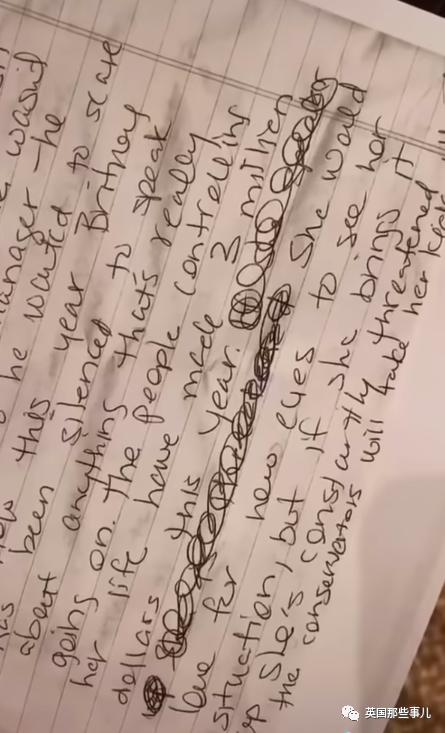 wasnt
manager – he
he wanted to scare
this year Britney
has been silenced to speak
about anything that's really
going on. The people controlling
her life have made 3 million
dollars this year.
She would
love for new eyes to see her
situation, but if she brings it
up she's constantly threatened
the conservators will take her kids
英国那些事儿